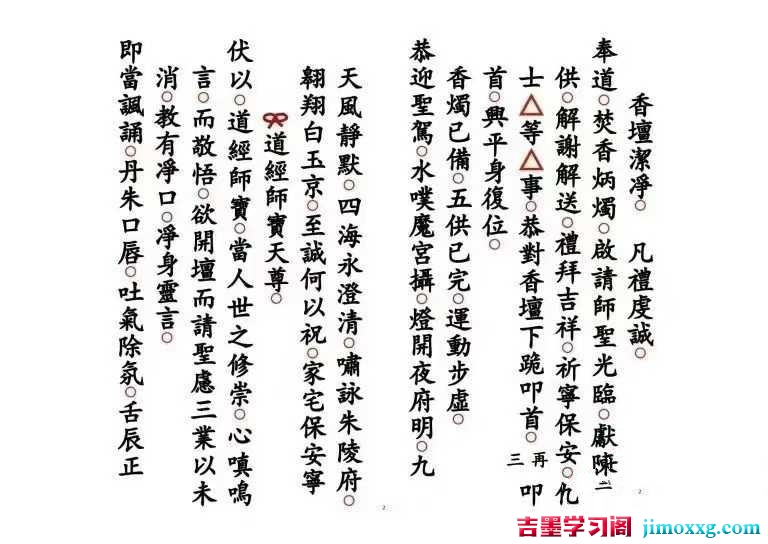 香壇潔淨。 凡禮虔誠。
奉道。焚香炳燭。啟請師聖光臨。獻陳
供。解謝解送。禮拜吉祥。祈寧保安。凡
士△等△事。恭對香壇下跪叩首。再三叩
首。興平身復位。
香燭已備。五供已完。運動步虛。
恭迎聖駕。水噗魔宮攝。燈開夜府明。九
天風靜默。四海永澄清。嘯詠朱陵府。
翱翔白玉京。至誠何以祝。家宅保安寧
道經師寶天尊。
伏以。道經師寶。當人世之修崇。心嗔鳴
言。而敬悟。欲開壇而請聖慮三業以未
消。教有淨口。淨身靈言。
即當諷誦。丹朱口唇。吐氣除氛。舌辰正
2
2
吉墨学习阁 jimoxxg.com